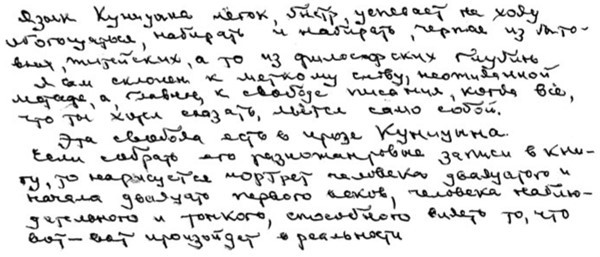 Язык Куницына меток, быстр, успевает на ходу
обогощаться, набирать и набирать, черпая из быто-
вых, житейских, а то из философских глубин.
Я сам склонен к меткому слову, неожиданной
метафоре, а, главное, к свободе писания, когда всё,
что ты хочешь сказать, льётся само собой.
Эта свобода есть в прозе Куницына.
Если собрать его разножанровые записи в кни-
гу, то нарисуется портрет человека двадцатого и
начала двадцать первого веков, человека наблю-
дательного и тонкого, способного видеть то, что
вот-вот произойдет в реальности